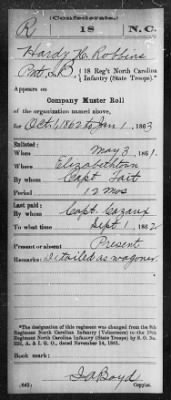 (Confederate.)
R 18 N.C.
Hardy C. Robbins
Pvt, Co. B, 18 Reg't North Carolina
Infantry (State Troops).*
Appears on
Company Muster Roll
of the organization named above,
for Oct. 1, 1862 to Jan 1, 1863
Enlisted:
When May 3, 1861.
Where Elizabethton
By whom Capt Tait
Period 12 mos
Last paid:
By whom Capt. Cozaux
To what time Sept 1, 1862
Present or absent Present
Remarks: Detailed as wagoner.
*The designation of this regiment was changed from the 8th
Regiment North Carolina Infantry (Volunteers) to the 18th
Regiment North Carolina Infantry (State Troops) by S. O. No.
222, A. & I. G. O., dated November 14, 1861.
Book mark:
(642) Copyist.